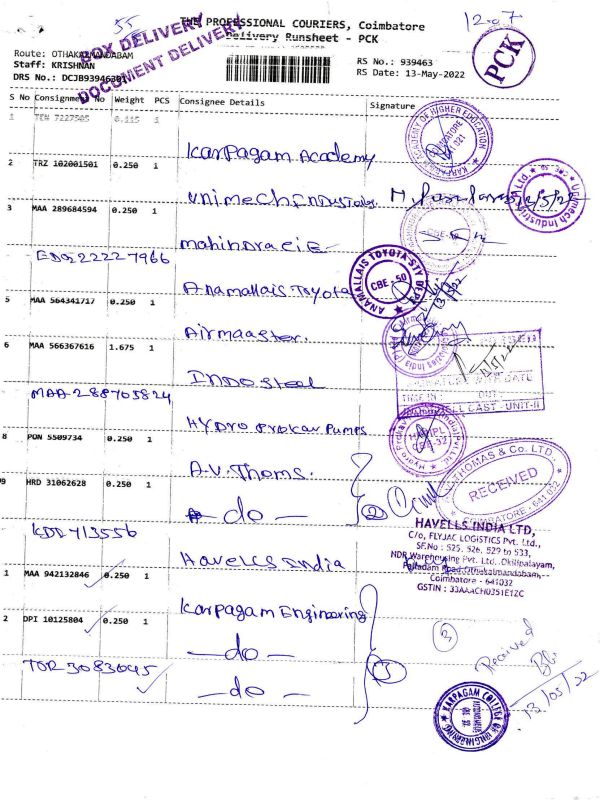 55
THE PROFESSIONAL COURIERS, Coimbatore
1207
Delivery Runsheet - PCK
BOX DELIVERY
DOCUMENT DELIVERY
PCK
Route: OTHAKALMANDABAM
Staff: KRISHNAN
DRS No.: DCJB93946301
RS No.: 939463
RS Date: 13-May-2022
S No Consignment No Weight PCS Consignee Details Signature
1 TEN 7227505 0.115 1
Karpagam Academy
KARPAGAM ACADEMY OF HIGHER EDUCATION
2 TRZ 102001501 0.250 1
Unimech Industries
Unimech Industries
3 MAA 289684594 0.250 1
mahindra CiE
EDO 22227966
Anamallais Toyota
ANAMALLAIS TOYOTA-STY DEPT
CBE - 50
13/5/22
5 MAA 564341717 0.250 1
Airmaaster.
6 MAA 566367616 1.675 1
INDO Steel
MAA 288705824
CAST - UNIT-II
Hydro Prokav Pumps
8 PON 5509734 0.250 1
A.V. Thoms.
THOMAS & Co. LTD.
RECEIVED
COIMBATORE - 641 032
9 HRD 31062628 0.250 1
- do -
2
KDD 413556
Havells India
HAVELLS INDIA LTD,
C/o, FLYJAC LOGISTICS Pvt. Ltd.,
SF.No : 525, 526, 529 to 533,
NDR Warehousing Pvt. Ltd. Okilipalayam,
Palladam Road, Othakalmandabam,
Coimbatore - 641032
GSTIN : 33AAACH0351E1ZC
1 MAA 942132846 0.250 1
Karpagam Engineering
2 DPI 10125804 0.250 1
- do -
3
3
TOR 3083045
- do -
Received
13/05/22
KARPAGAM COLLEGE OF ENGINEERING